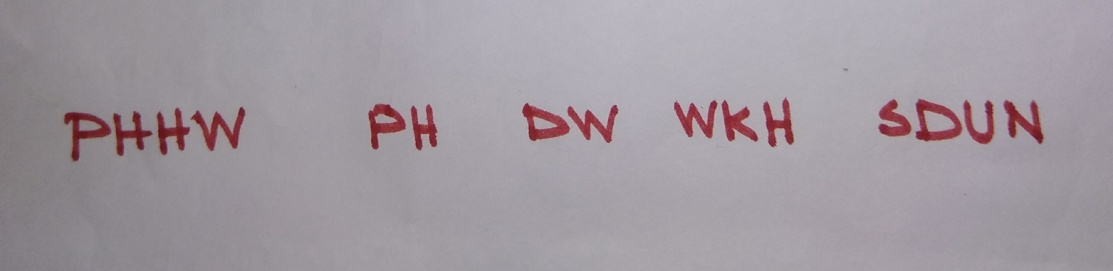 PHHW PH DW WKH SDUN